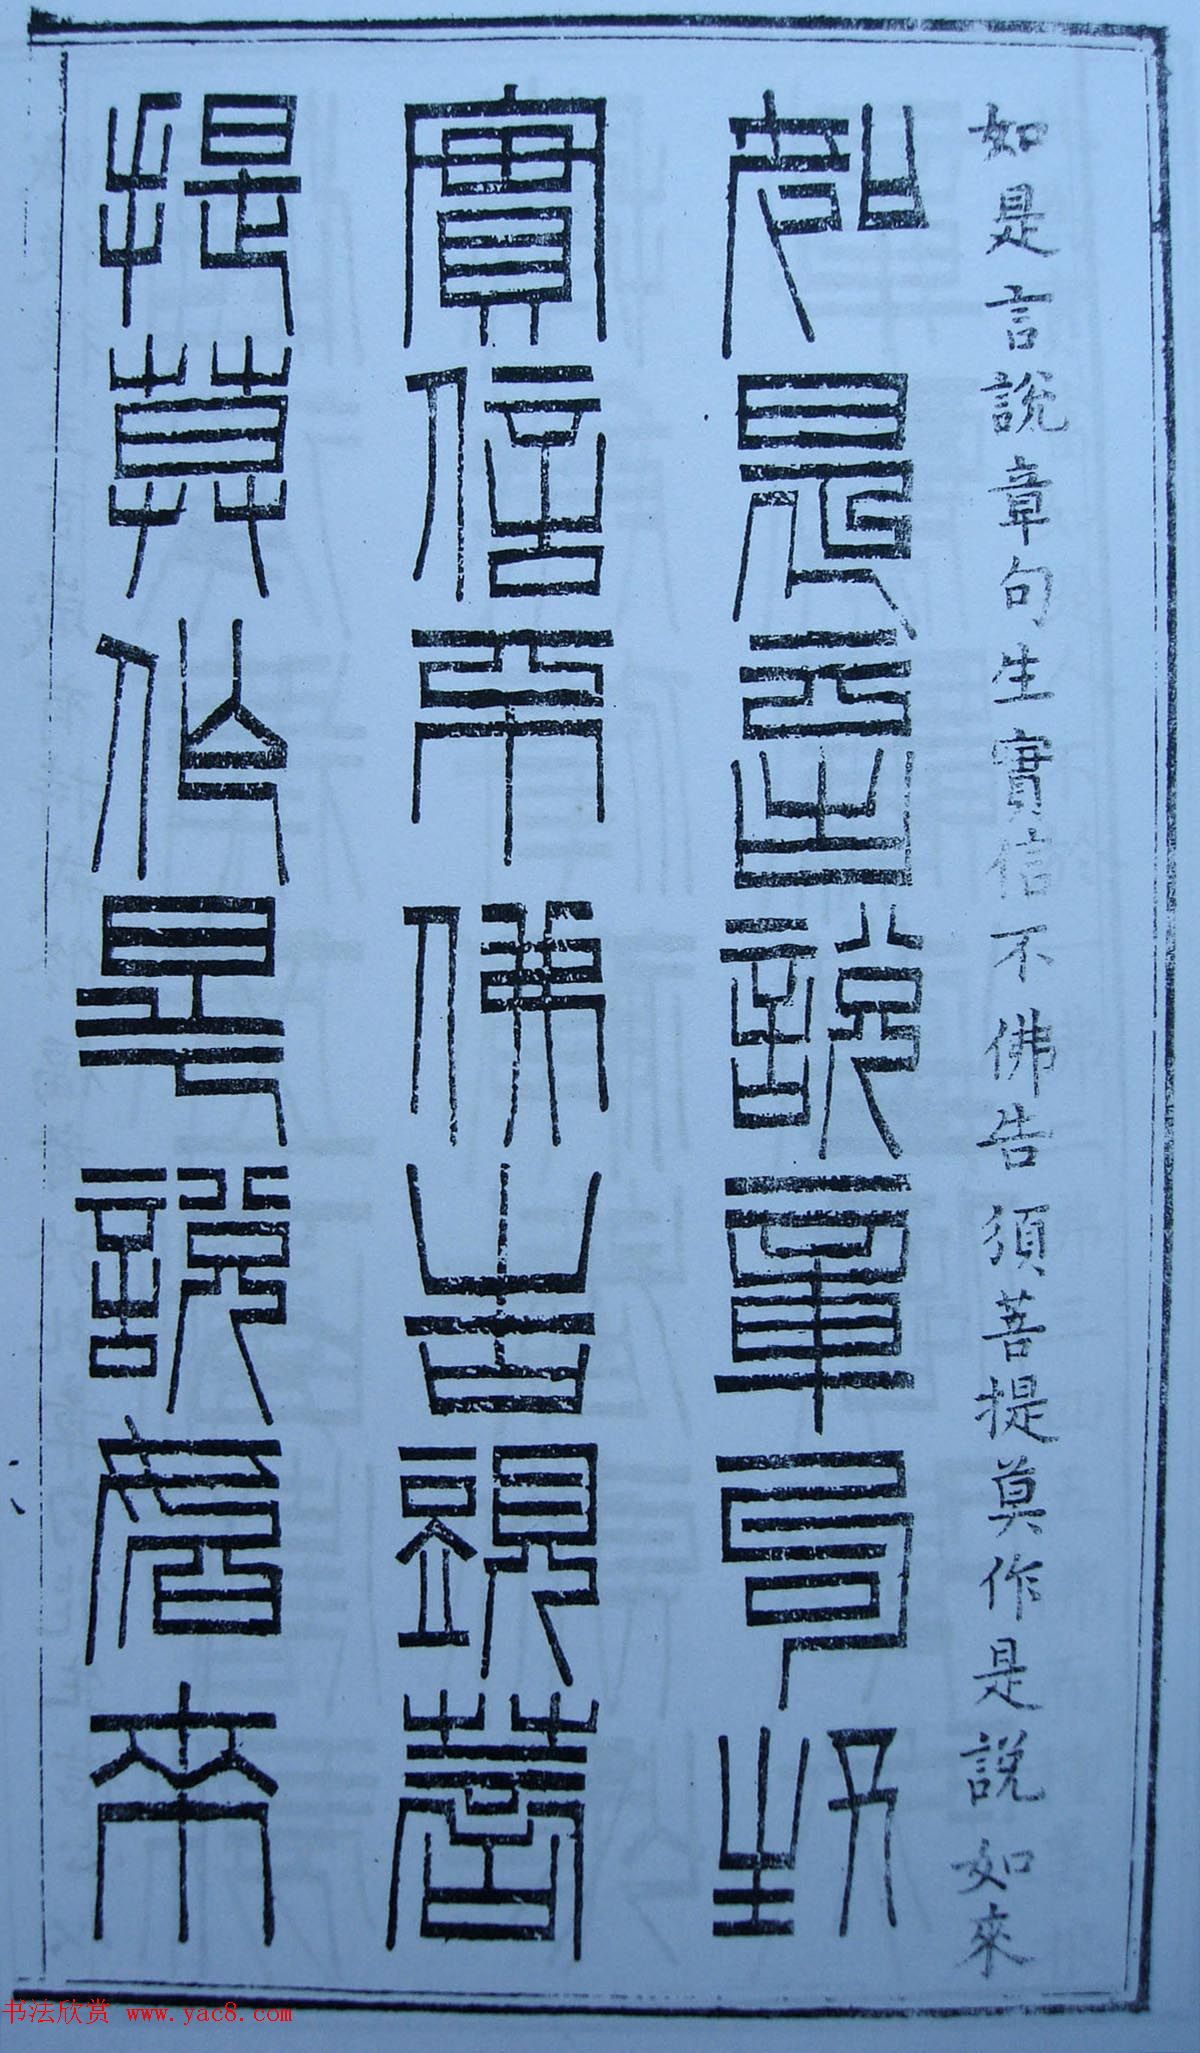 如是言說章句生實信不佛告須菩提莫作是說如來
如是言說章句生
實信不佛告須菩
提莫作是說如來
书法欣赏 www.yac8.com